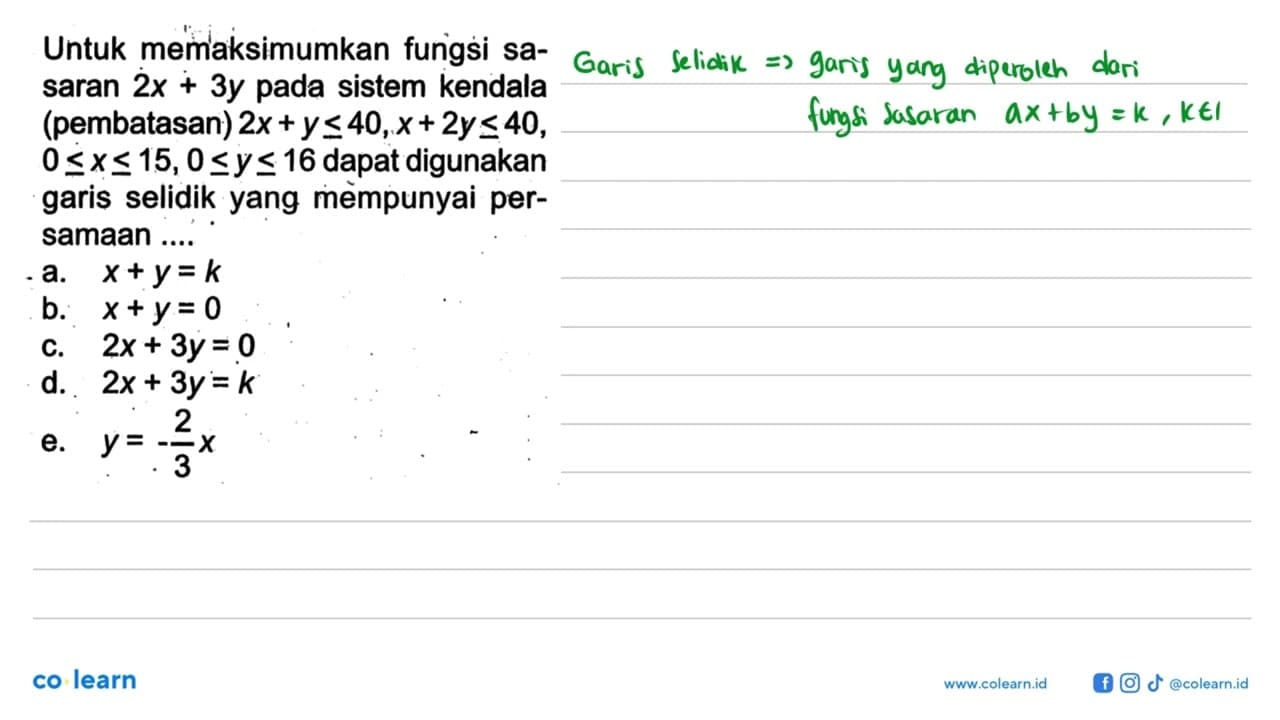 Untuk memaksimumkan fungsi sa-
saran 2x + 3y pada sistem kendala
(pembatasan) 2x + y ≤ 40, x + 2y ≤ 40,
0 ≤ x ≤ 15, 0 ≤ y ≤ 16 dapat digunakan
garis selidik yang mempunyai per-
samaan ....
a. x + y = k
b. x + y = 0
c. 2x + 3y = 0
d. 2x + 3y = k
e. y = -2/3 x
Garis Selidik => garis yang diperoleh dari
fungsi Sasaran ax + by = k, k ∈ I
co learn
www.colearn.id
@colearn.id